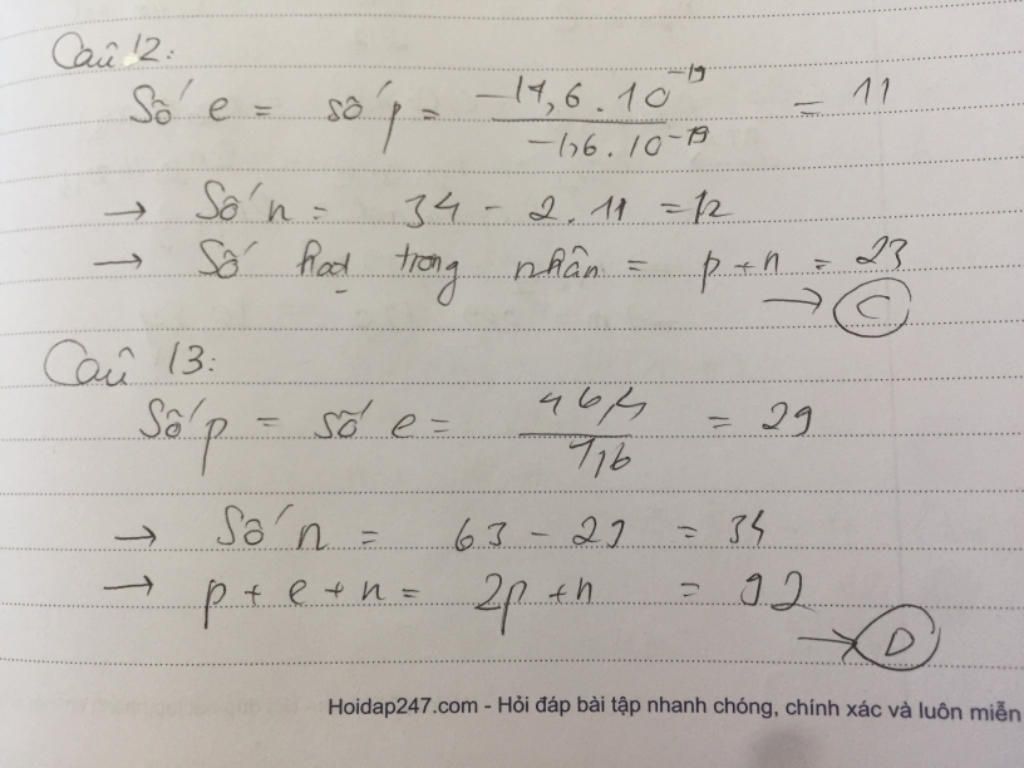 Câu 12:
Số e = số p = \frac{-17,6 . 10^{-19}}{-1,6 . 10^{-19}} = 11
→ Số n = 34 - 2.11 = 12
→ Số hạt trong nhân = p + n = 23
→ C
Câu 13:
Số p = số e = \frac{46,4}{1,6} = 29
→ Số n = 63 - 29 = 34
→ p + e + n = 2p + n = 92
→ D
Hoidap247.com - Hỏi đáp bài tập nhanh chóng, chính xác và luôn miễn